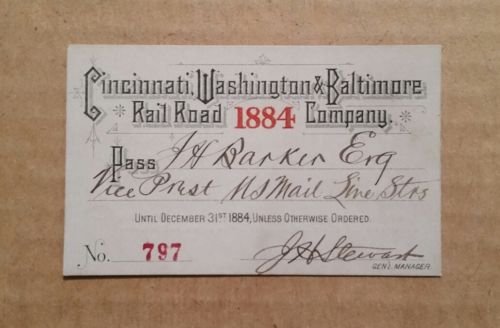 Cincinnati, Washington & Baltimore
Rail Road 1884 Company.
Pass J H Barker Esq
Vice Prest US Mail Line Strs
UNTIL DECEMBER 31ST 1884, UNLESS OTHERWISE ORDERED.
No. 797
J H Stewart
GEN'L MANAGER.